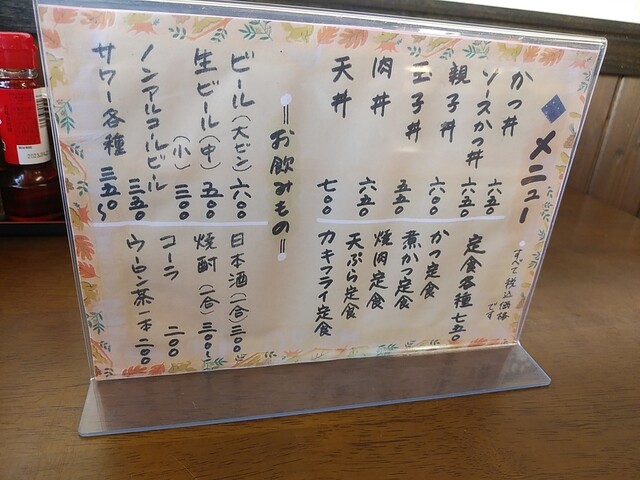 ◆メニュー
すべて税込価格です
かつ丼 六五〇
ソースかつ丼 六五〇
親子丼 六〇〇
玉子丼 五五〇
肉丼 六五〇
天丼 七〇〇
定食各種 七五〇
かつ定食
煮かつ定食
焼肉定食
天ぷら定食
カキフライ定食
お飲みもの
ビール(大ビン) 六〇〇
生ビール(中) 五〇〇
(小) 三〇〇
ノンアルコールビール 三五〇
サワー各種 三五〇〜
日本酒(一合) 三〇〇
焼酎(一合) 三〇〇〜
コーラ 二〇〇
ウーロン茶一本 二〇〇